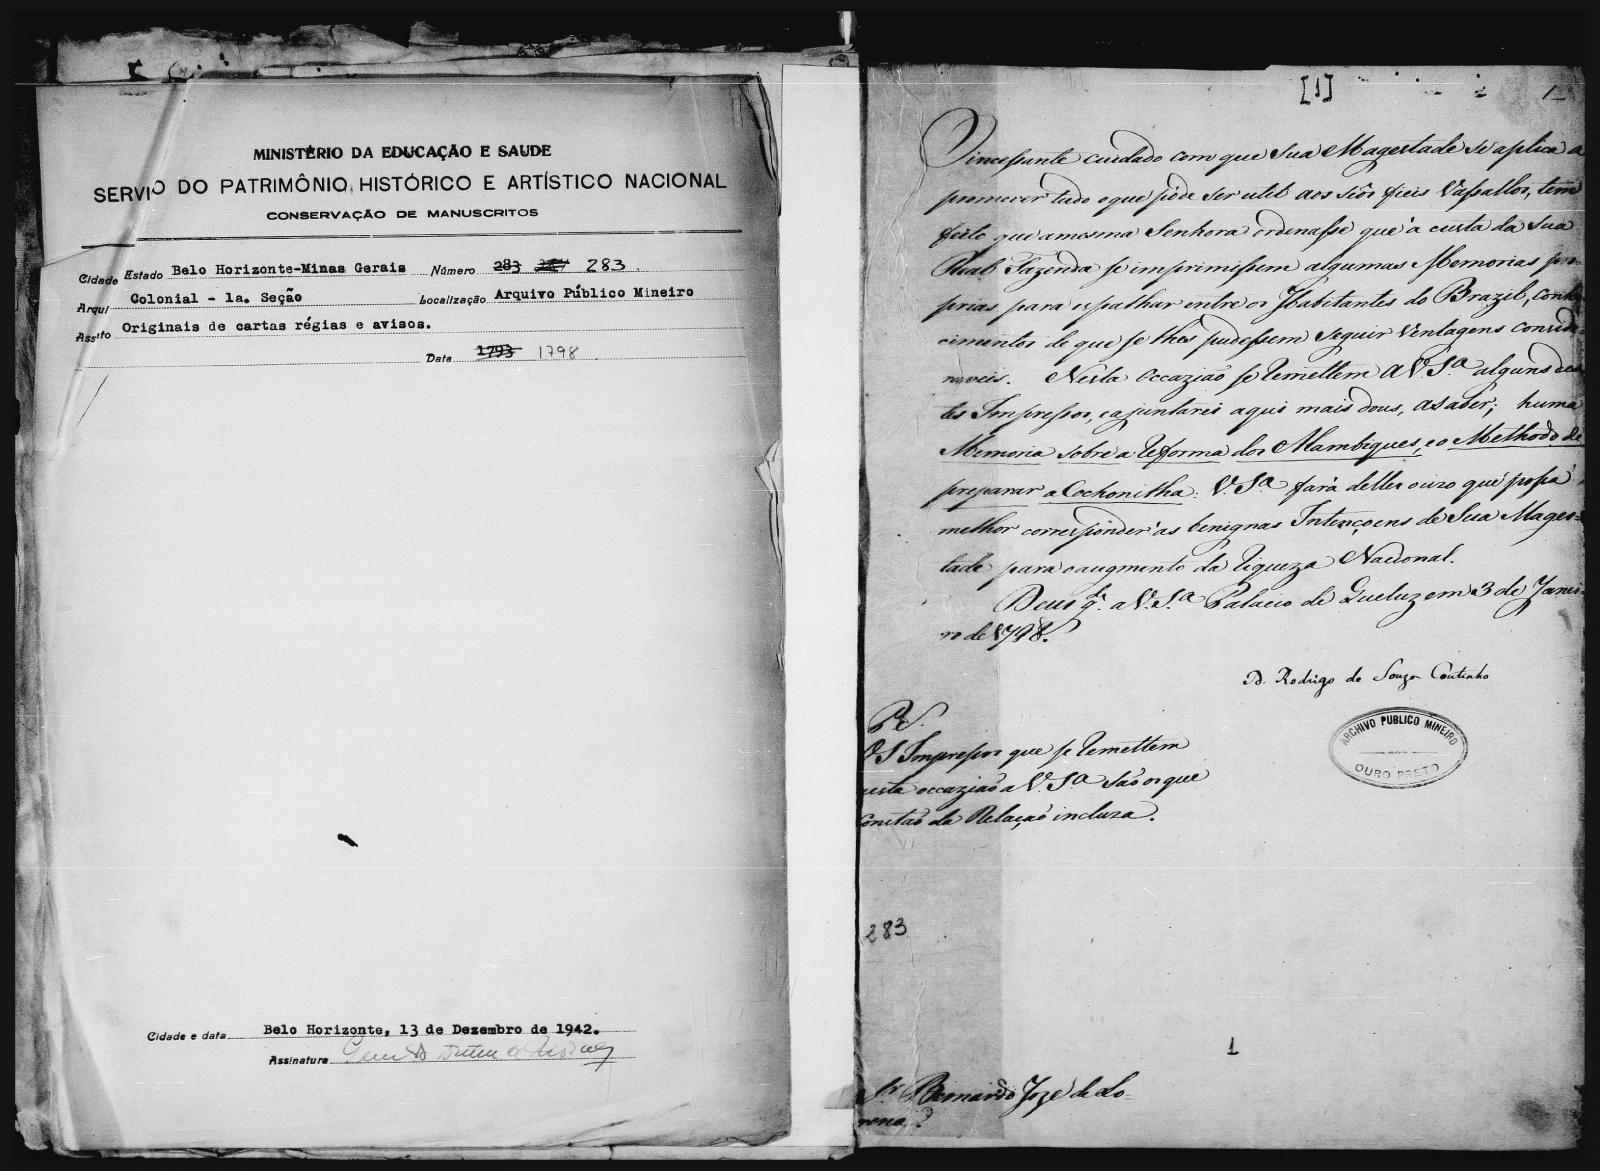 MINISTÉRIO DA EDUCAÇÃO E SAUDE
SERVIÇO DO PATRIMÔNIO HISTÓRICO E ARTÍSTICO NACIONAL
CONSERVAÇÃO DE MANUSCRITOS
Cidade Estado Belo Horizonte-Minas Gerais Número 283 283.
Arqui Colonial - 1a. Seção Localização Arquivo Público Mineiro
Assto Originais de cartas régias e avisos.
Data 1793 1798
Cidade e data Belo Horizonte, 13 de Dezembro de 1942.
Assinatura
[1] 1
O incessante cuidado com que Sua Magestade se aplica a
promover tudo o que póde ser util aos seos fieis Vassallos, tem
feito que a mesma Senhora ordenasse que á custa da Sua
Real Fazenda se imprimissem algumas Memorias pro-
prias para espalhar entre os Habitantes do Brazil, conhe-
cimentos de que se lhes pudessem seguir Ventagens conside-
raveis. Nesta occazião se remettem a V. S.ª alguns des-
tes Impressos, e ajuntarei aqui mais dous, a saber; huma
Memoria sobre a reforma dos Alambiques, e o Methodo de
preparar a Cochonilha: V. S.ª fará delles o uzo que possa
melhor corresponder ás benignas Intençoens de Sua Mages=
tade para o augmento da riqueza Nacional.
Deos g.de a V. S.ª Palacio de Queluz em 3 de Janei-
ro de 1798.
D. Rodrigo de Souza Coutinho
ARCHIVO PUBLICO MINEIRO
OURO PRETO
OS Impressos que se remettem
nesta occazião a V. S.ª são os que
constão da Relação incluza.
283
1
Sr. Bernardo Jozé de Lo-
rena.